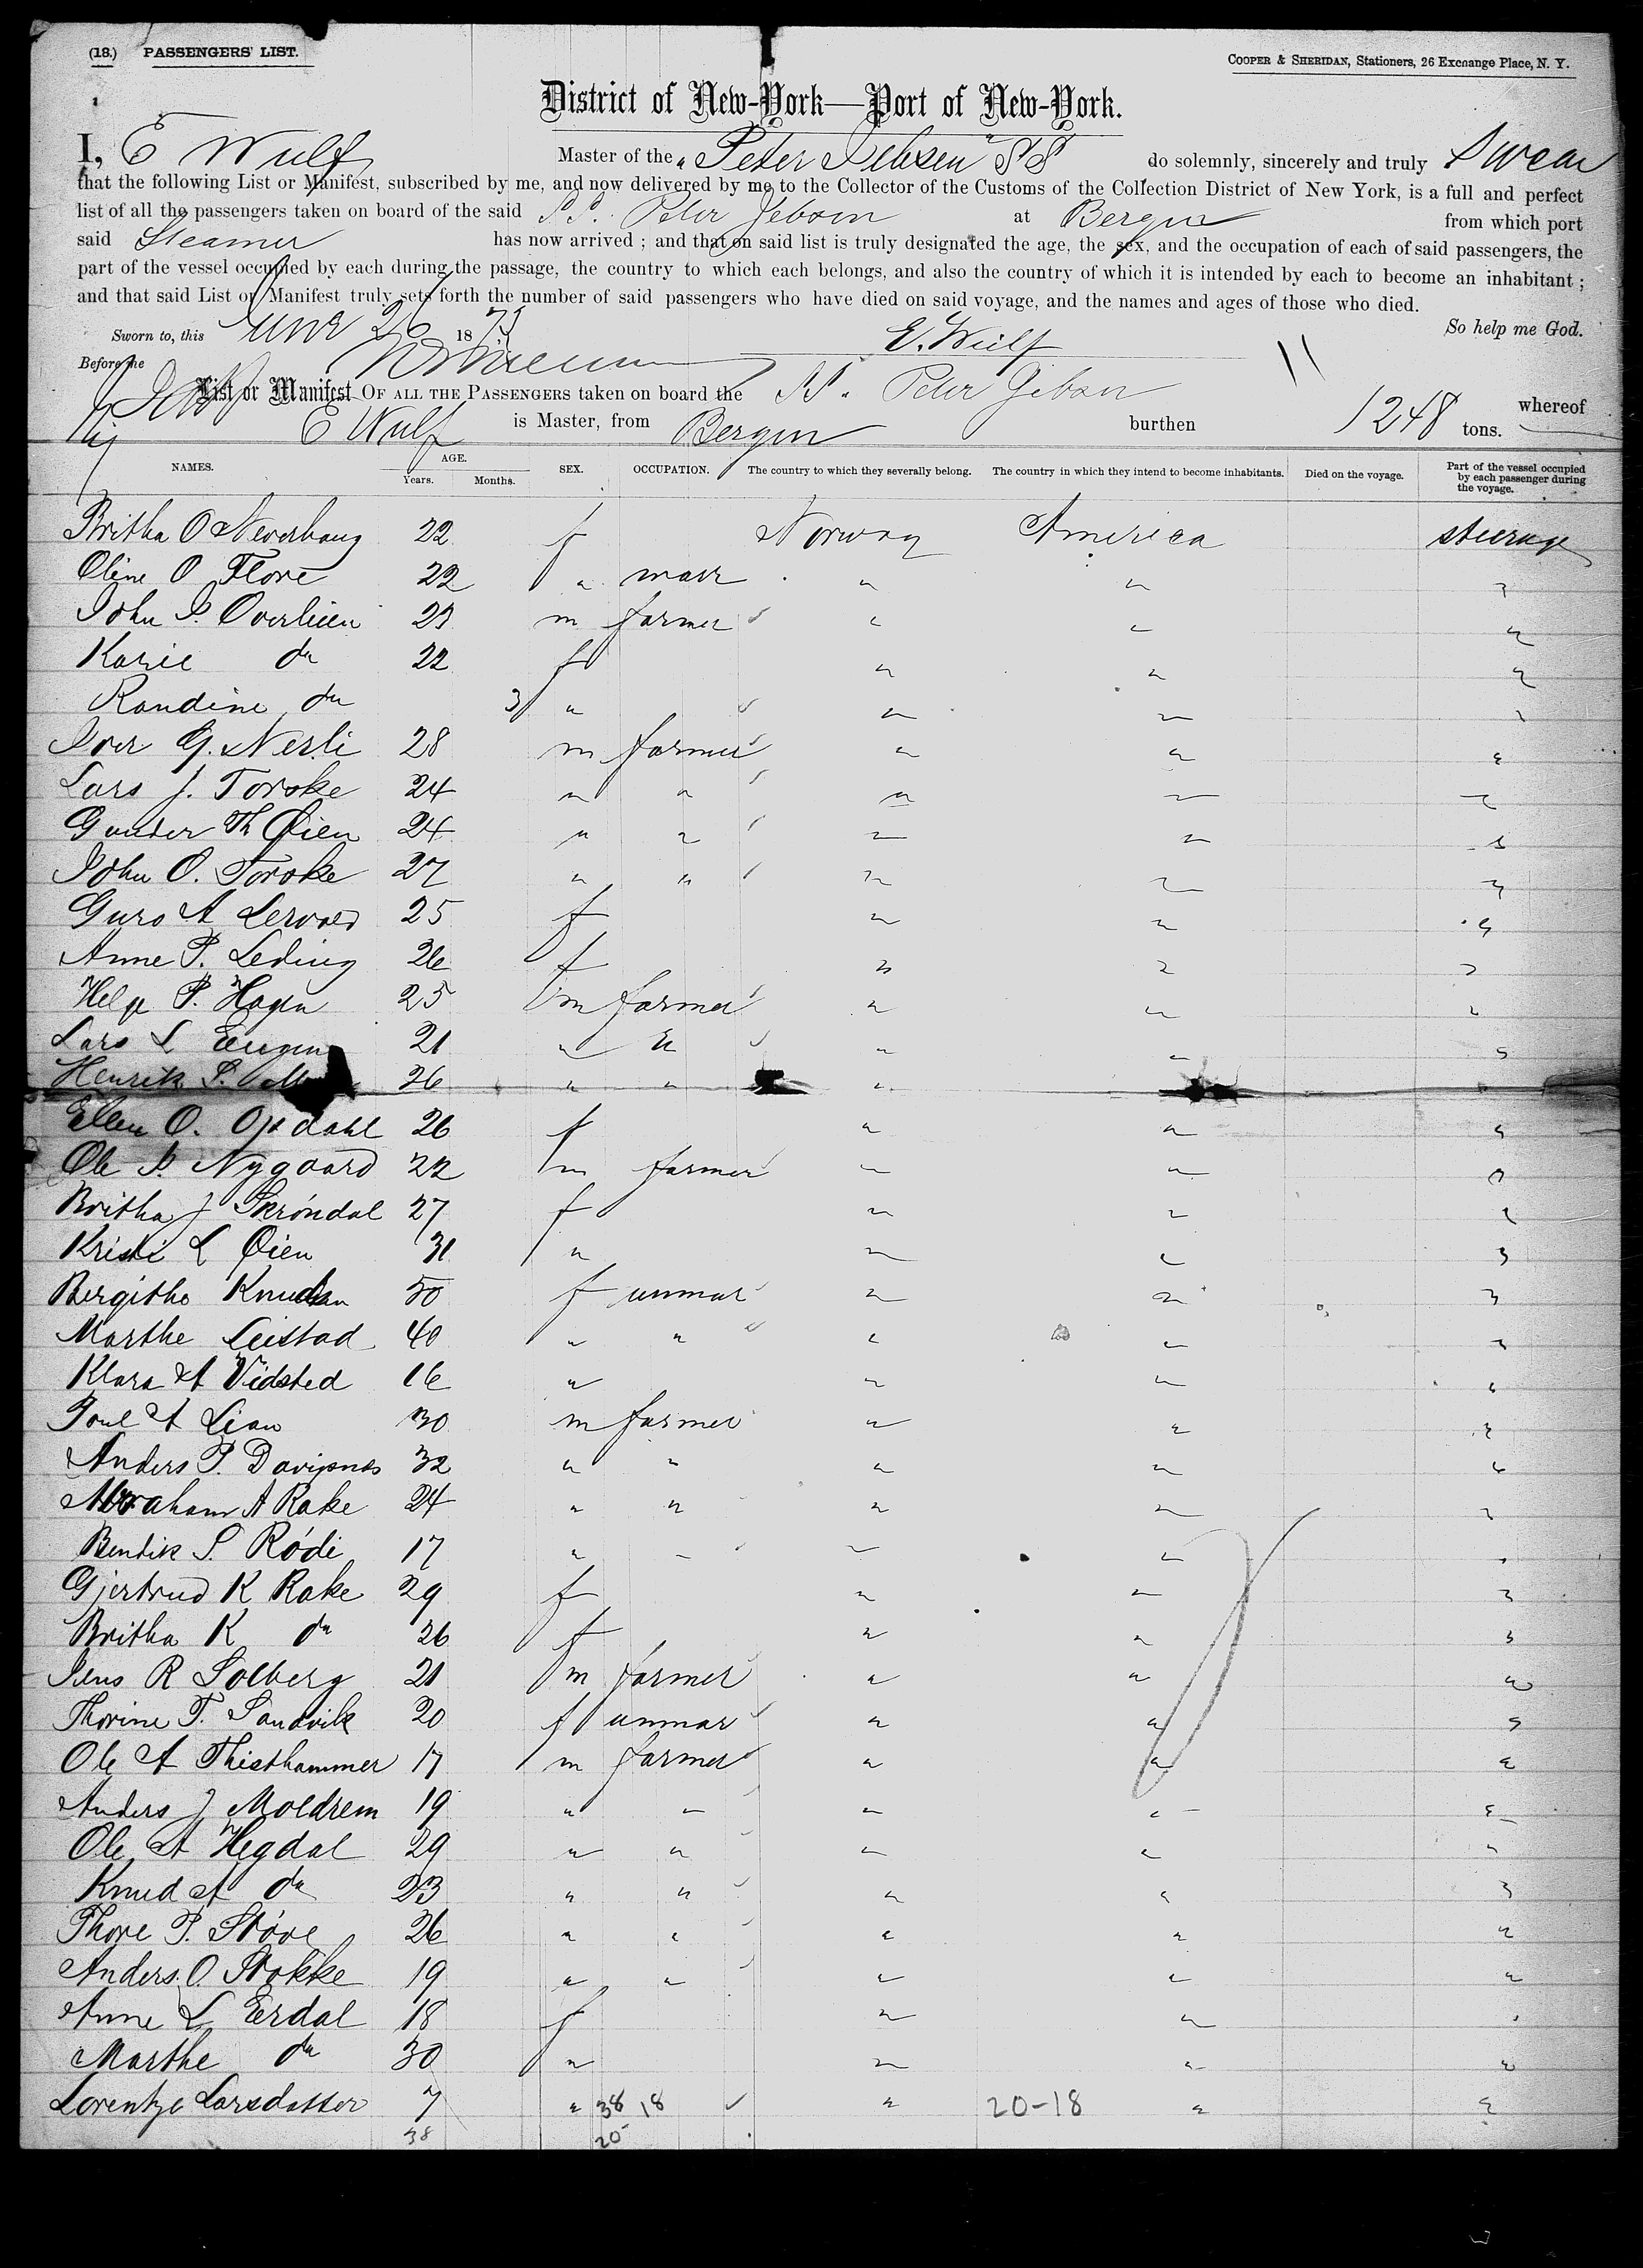 (18.) PASSENGERS' LIST.
COOPER & SHERIDAN, Stationers, 26 Exchange Place, N. Y.
District of New-York—Port of New-York.
I, E Wulf Master of the "Peter Jebsen" SS do solemnly, sincerely and truly Swear
that the following List or Manifest, subscribed by me, and now delivered by me to the Collector of the Customs of the Collection District of New York, is a full and perfect
list of all the passengers taken on board of the said SS. Peter Jebsen at Bergen from which port
said Steamer has now arrived ; and that on said list is truly designated the age, the sex, and the occupation of each of said passengers, the
part of the vessel occupied by each during the passage, the country to which each belongs, and also the country of which it is intended by each to become an inhabitant ;
and that said List or Manifest truly sets forth the number of said passengers who have died on said voyage, and the names and ages of those who died.
Sworn to, this June 26 1873 So help me God.
E. Wulf
Before me
List or Manifest OF ALL THE PASSENGERS taken on board the SS. Peter Jebsen whereof
E Wulf is Master, from Bergen burthen 1248 tons.
NAMES. AGE. Years. Months. SEX. OCCUPATION. The country to which they severally belong. The country in which they intend to become inhabitants. Died on the voyage. Part of the vessel occupied by each passenger during the voyage.
Britha O 22 f Norway America steerage
Oline O Flore 22 " " " "
John P. Overlien m farmer " " "
Karie do 22 f " " "
Randine do 3 " " " "
Iver G. Nesli 28 m farmer " " "
Lars J. Torske 24 " " " " "
Gunder Th Øien 24 " " " " "
John O. Torske 27 " " " " "
Guro A 25 f " " "
Anne P. Leding 26 f " " "
Helge P. Hagen 25 m farmer " " "
Lars L 21 " " " " "
Henrik P. 26 " " "
Ellen O. Opdahl 26 f " " "
Ole P. Nygaard 22 m farmer " " "
Britha J Skróndal 27 f " " "
Kristi L Øien 31 " " " "
Bergithe Knudsen 50 f unmar " " "
Marthe Leistad 40 " " " " "
Klara A Vidsted 16 " " " "
Poul A Lian 30 m farmer " " "
Anders P. 32 " " " " "
Abraham A Rake 24 " " " " "
Bendik S. Ródi 17 " " " " "
Gjertrud K Rake 29 f " " "
Britha K do 26 f " " "
Jens R Solberg 21 m farmer " " "
Thorine T. Sandvik 20 f unmar " " "
Ole A Thisthammer 17 m farmer " " "
Anders J Moldrem 19 " " " " "
Ole A Hegdal 29 " " " " "
Knud A do 23 " " " " "
Thore P. Stóve 26 " " " " "
Anders O. Stokke 19 " " " " "
Anne L Eerdal 18 f " " "
Marthe do 30 " " " "
Lorentze Larsdatter 7 " 38 18 " 20-18 " "
38 20